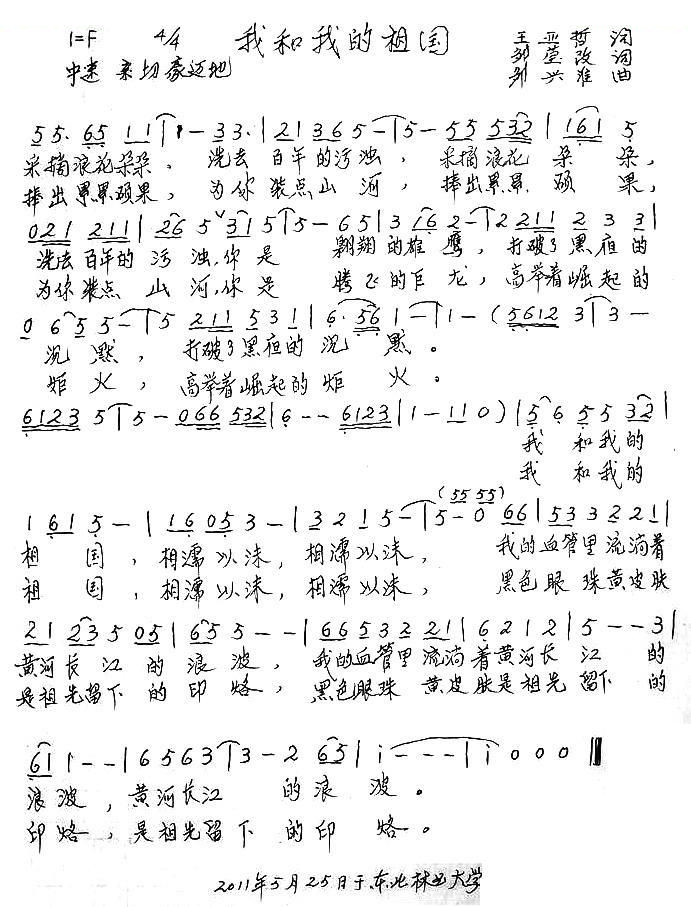 1=F 4/4 我和我的祖国 王亚哲 词
中速 亲切豪迈地 邹莹 改词
邹兴淮 曲
5 5· 6 5 1 1 | 1 - 3 3· | 2 1 3 6 5 - | 5 - 5 5 5 3 2 | 1 6 1 5
采摘浪花朵朵。洗去百年的污浊，采摘浪花朵朵，
捧出累累硕果，为你装点山河，捧出累累硕果，
0 2 1 2 1 1 | 2 6 5 ˅ 3 1 5 | 5 - 6 5 | 3 1 6 2 - | 2 2 1 1 2 3 3 |
洗去百年的污浊，你是翱翔的雄鹰，打破了黑夜的
为你装点山河，你是腾飞的巨龙，高举着崛起的
0 6 5 5 - | 5 2 1 1 5 3 1 | 6· 5 6 1 - | 1 - ( 5 6 1 2 3 | 3 -
沉默，打破了黑夜的沉默。
炬火，高举着崛起的炬火。
6 1 2 3 5 | 5 - 0 6 6 5 3 2 | 6 - - 6 1 2 3 | 1 - 1 1 0 ) | 5 6 5 5 3 2 |
我和我的
我和我的
( 5 5 5 5 )
1 6 1 5 - | 1 6 0 5 3 - | 3 2 1 5 - | 5 - 0 6 6 | 5 3 3 2 2 1 |
祖国，相濡以沫，相濡以沫，我的血管里流淌着
祖国，相濡以沫，相濡以沫，黑色眼珠黄皮肤
2 1 2 3 5 0 5 | 6 5 5 - - | 6 6 5 3 2 2 1 | 6 2 1 2 | 5 - - 3 |
黄河长江的浪波，我的血管里流淌着黄河长江的
是祖先留下的印烙，黑色眼珠黄皮肤是祖先留下的
6 1 1 - - | 6 5 6 3 | 3 - 2 6 5 | i - - - | i 0 0 0 ‖
浪波，黄河长江的浪波。
印烙，是祖先留下的印烙。
2011年5月25日于东北林业大学